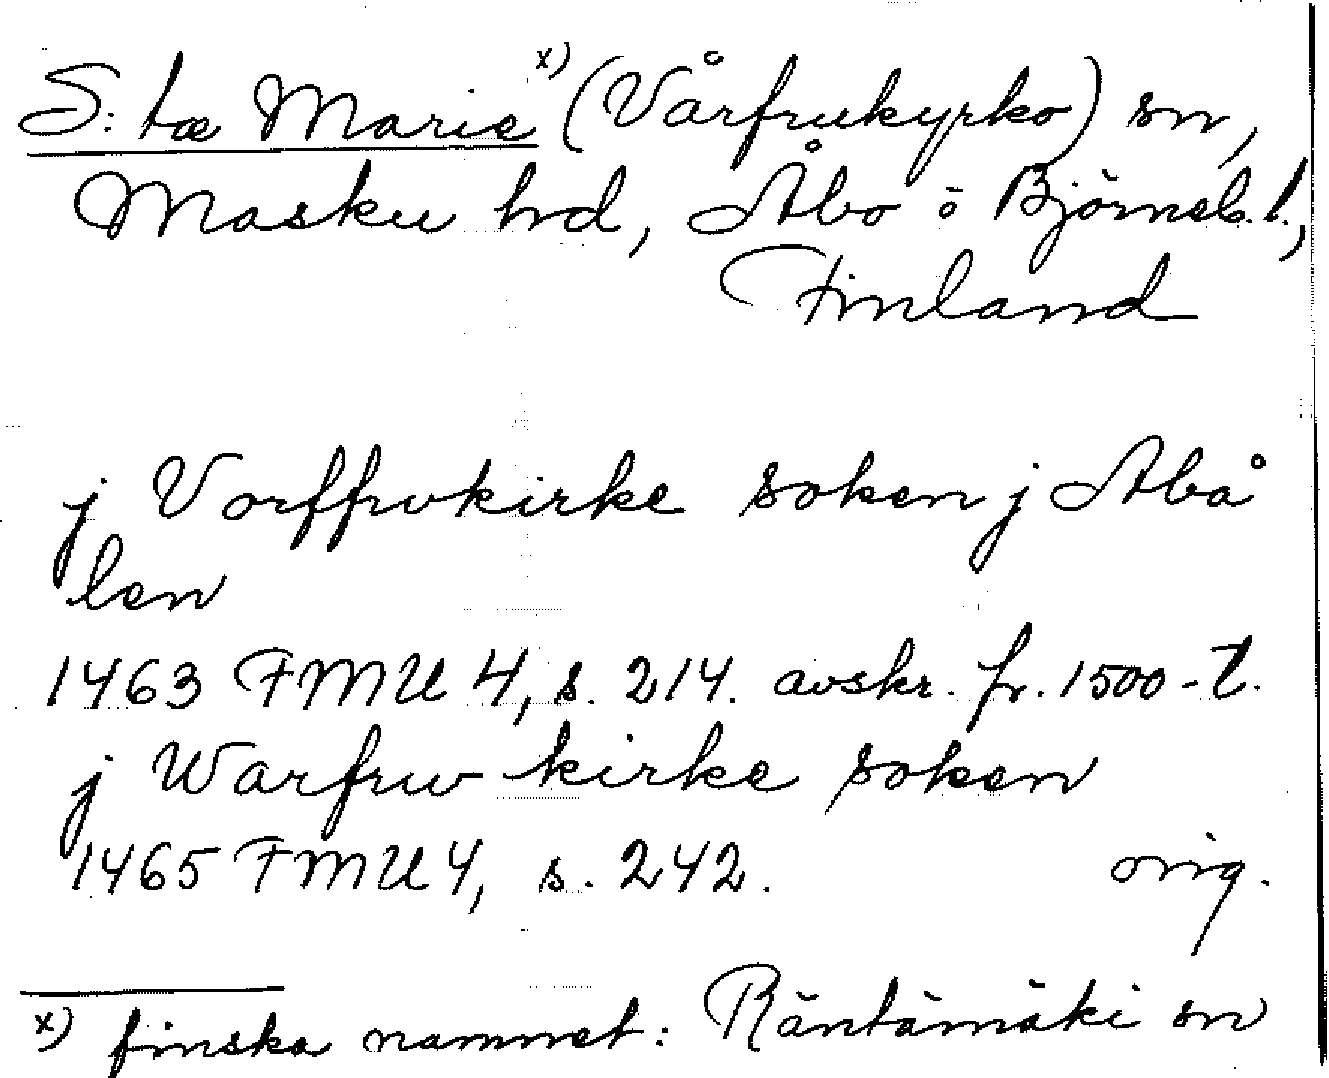 S:tæ Marie x) (Vårfrukyrko) sn,
Masku hd, Åbo ö Björneb. l.,
Finland
j Vorffrvkirke soken j Abå
len
1463 FMU 4, s. 214. avskr. fr. 1500-t.
j Warfrw kirke soken
1465 FMU 4, s. 242. orig.
x) finska namnet: Räntämäki sn